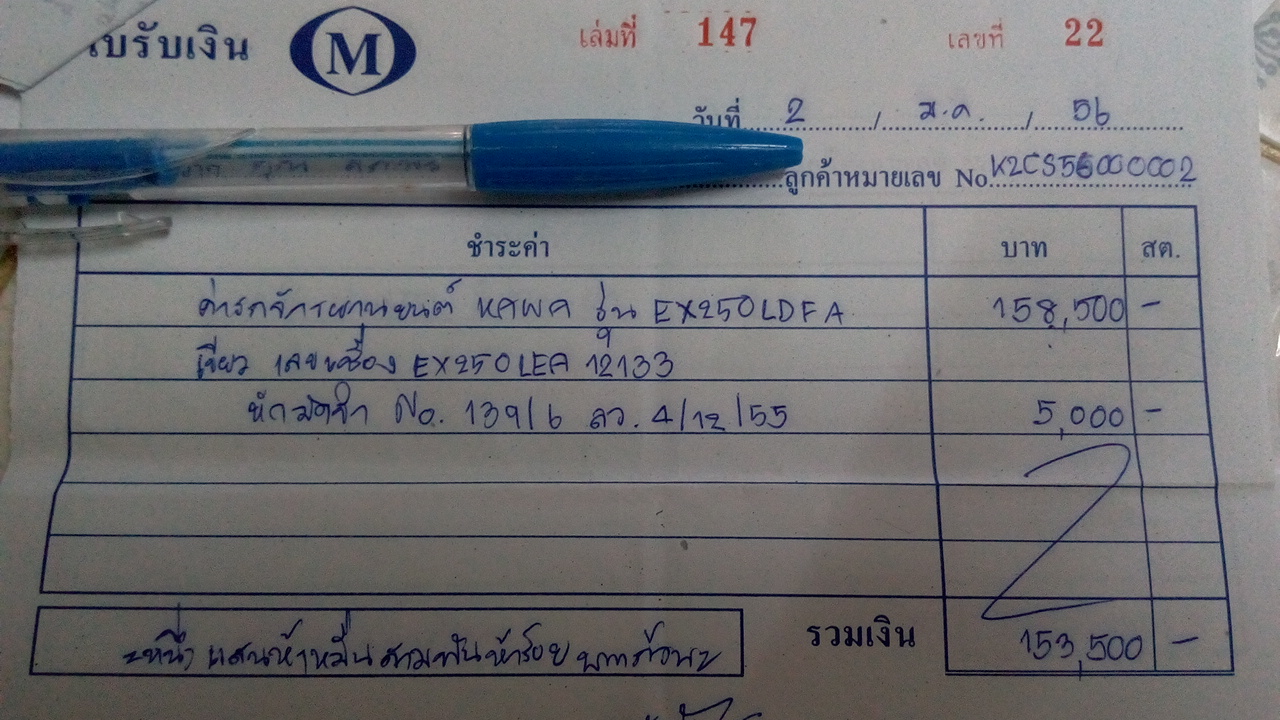 ใบรับเงิน M เล่มที่ 147 เลขที่ 22
วันที่ 2 / ม.ค. / 56
ลูกค้าหมายเลข No. K2CS56000002
ชำระค่า บาท สต.
ค่ารถจักรยานยนต์ KAWA รุ่น EX250LDFA 158,500 -
เขียว เลขเครื่อง EX250LEA 12133
หักมัดจำ No. 139/6 ลว. 4/12/55 5,000 -
รวมเงิน 153,500 -
=หนึ่งแสนห้าหมื่นสามพันห้าร้อยบาทถ้วน=